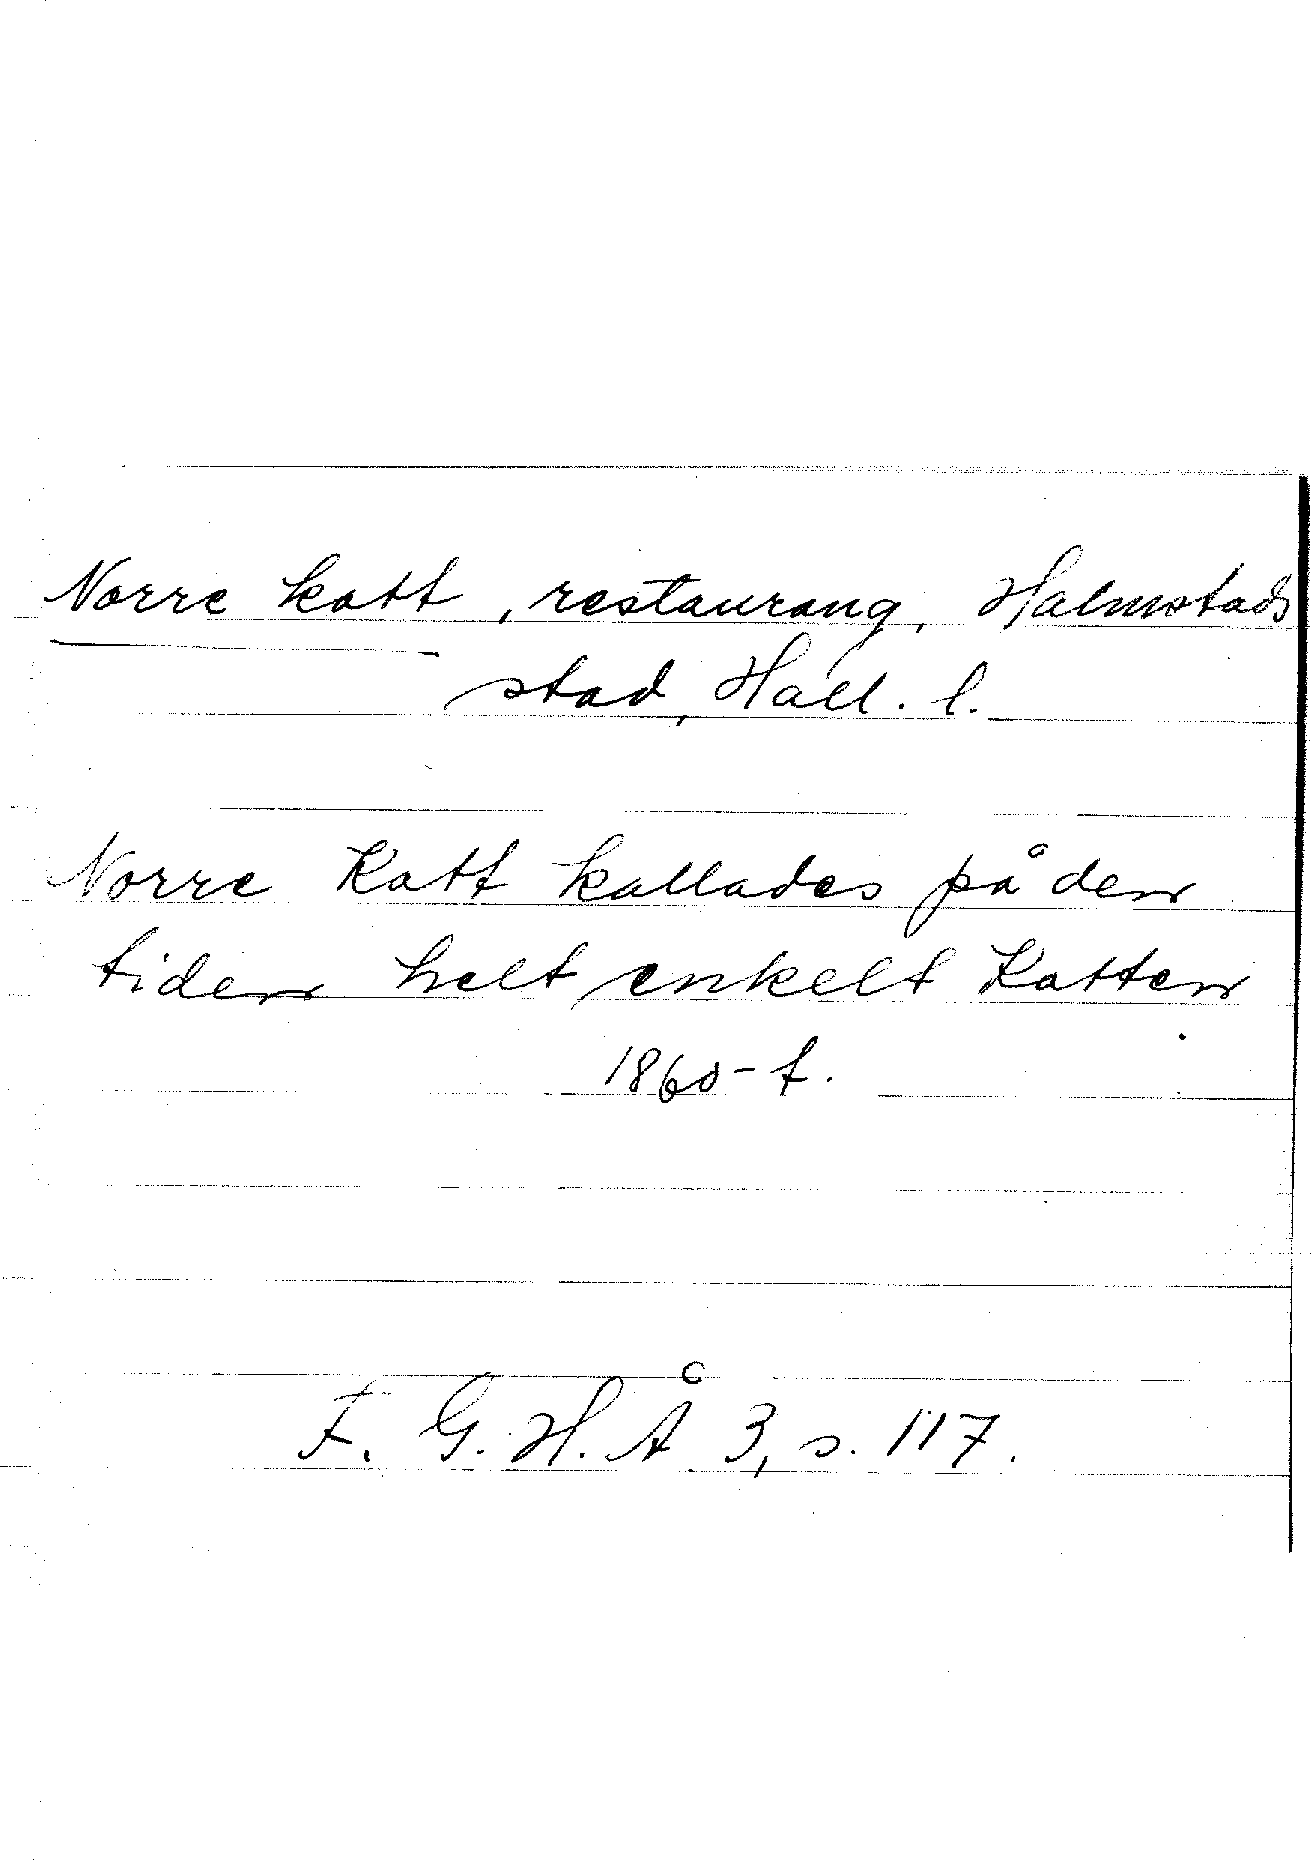 Norre katt, restaurang, Halmstads
stad, Hall. l.
Norre Katt kallades på den
tiden helt enkelt Katten
1860-t.
F. G. H. Å 3, s. 117.